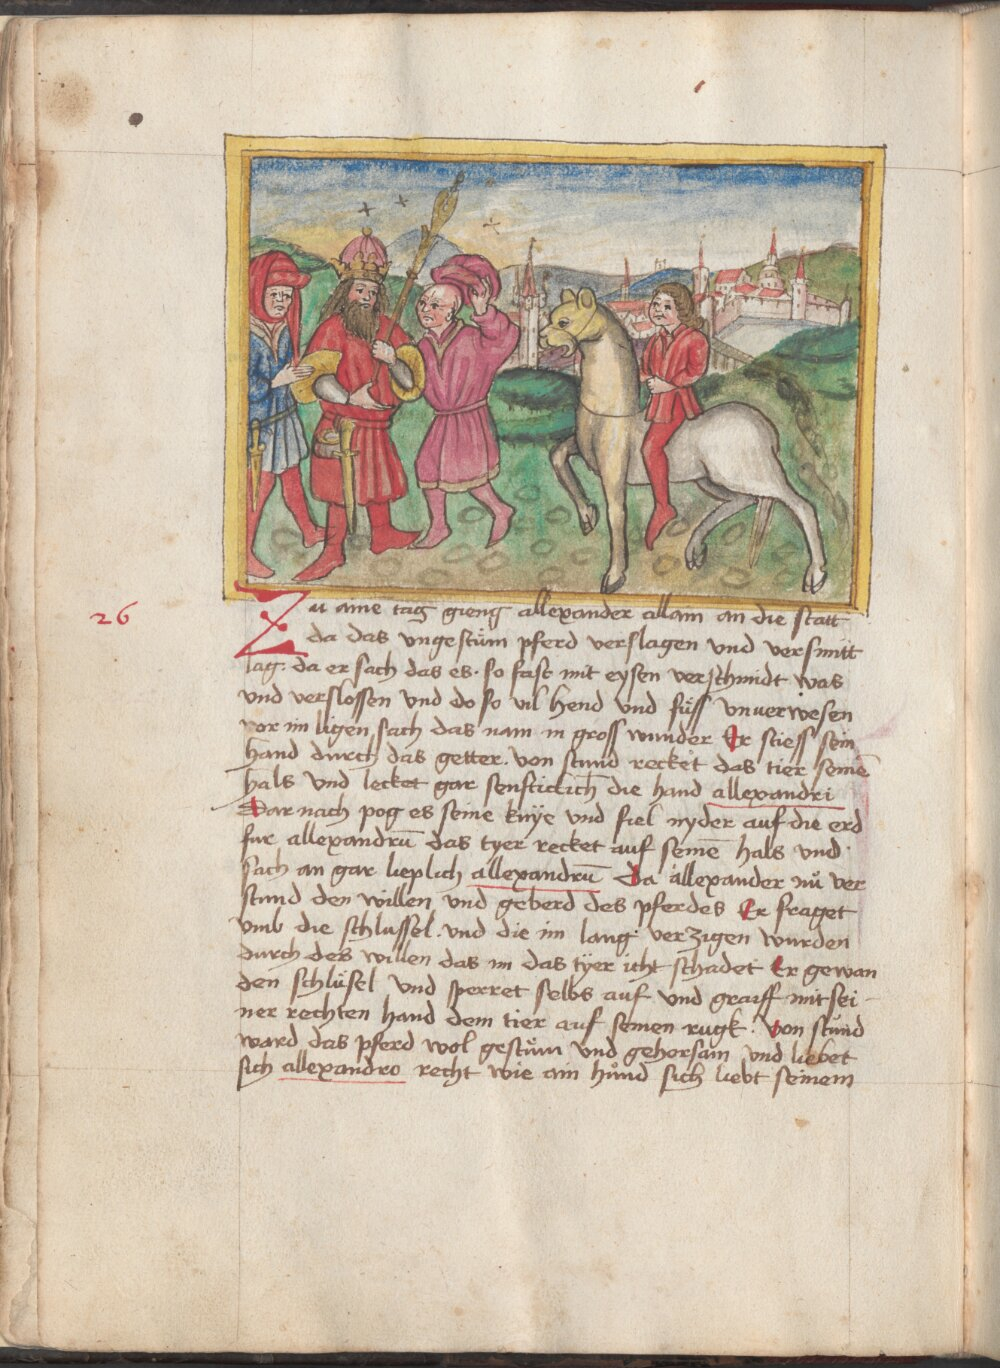 26
Zu aine tag gieng allexander allain an die statt
da das vngestüm pferd verslagen vnd versmitt
lag. da er sach das es. so fast mit eysen verschmidt was
vnd verslossen vnd do so vil hend vnd füss vnuerwesen
vor im ligen sach das nam in gross wunder Er stiess sein
hand durch das getter. von stund recket das tier seinē
hals vnd lecket gar senfticlich die hand allexandri
Dar nach pog es seine knye vnd fiel nyder auf die erd
fur allexandrū das tyer recket auf seinē hals vnd
sach an gar lieplich allexandrū Da allexander nů ver
stund den willen vnd geberd des pferdes Er fraget
vmb die schlussel. vnd die im lang verzigen wurden
durch des willen das im das tyer icht schadet Er gewan
den schlüsel vnd sperret selbs auf vnd graiff mit sei-
ner rechten hand dem tier auf seinen rugk. Von stund
ward das pferd wol gestům vnd gehorsam vnd liebet
sich allexandro recht wie ain hůnd sich liebt seinem